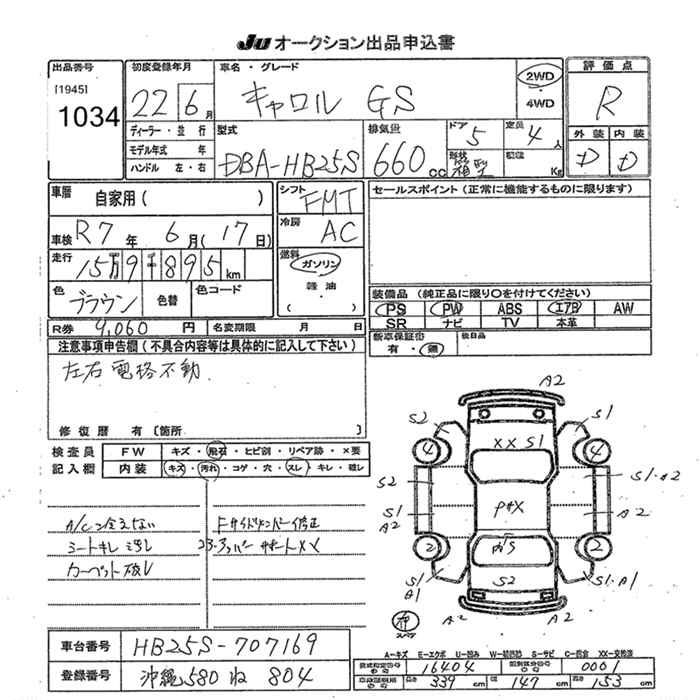 JU オークション出品申込書
出品番号 初度登録年月 車名・グレード 評価点
[1945] 1034 22 6月 キャロル GS 2WD ・ 4WD R
ディーラー・並行 型式 排気量 ドア 5 定員 4人 外装 内装
モデル年式 年 DBA-HB25S 660cc 形状 箱型 積載 Kg D D
ハンドル 左・右
車歴 自家用( ) シフト FMT セールスポイント(正常に機能するものに限ります)
車検 R7年 6月(17日) 冷房 AC
走行 15万9千895km 燃料 ガソリン
色 ブラウン 色替 色コード 軽油 ( )
装備品(純正品に限り○を付けてください)
PS PW ABS エアB AW
SR ナビ TV 本革
R券 9,060円 名変期限 月 日 新車保証書 有・無 後日品
注意事項申告欄(不具合内容等は具体的に記入して下さい)
左右電格不動
修復歴 有(箇所
検査員記入欄 FW キズ・飛石・ヒビ割・リペア跡・×要
内装 キズ・汚れ・コゲ・穴・スレ・キレ・破レ
A/C 冷えない
シートキレ
カーペット破レ
A2
S2 S1
4 XX S1 4
S2 S1・A2
S1 A2 A2
2 2
S1 A1 S2 S1・A1
A2 A2
車台番号 HB25S-707169
登録番号 沖縄 580 ね 804
A-キズ E-エクボ U-凹み W-補修跡 S-サビ C-腐食 XX-交換済
型式指定番号 16404 類別区分番号 0001
長さ 339cm 幅 147cm 高さ 153cm